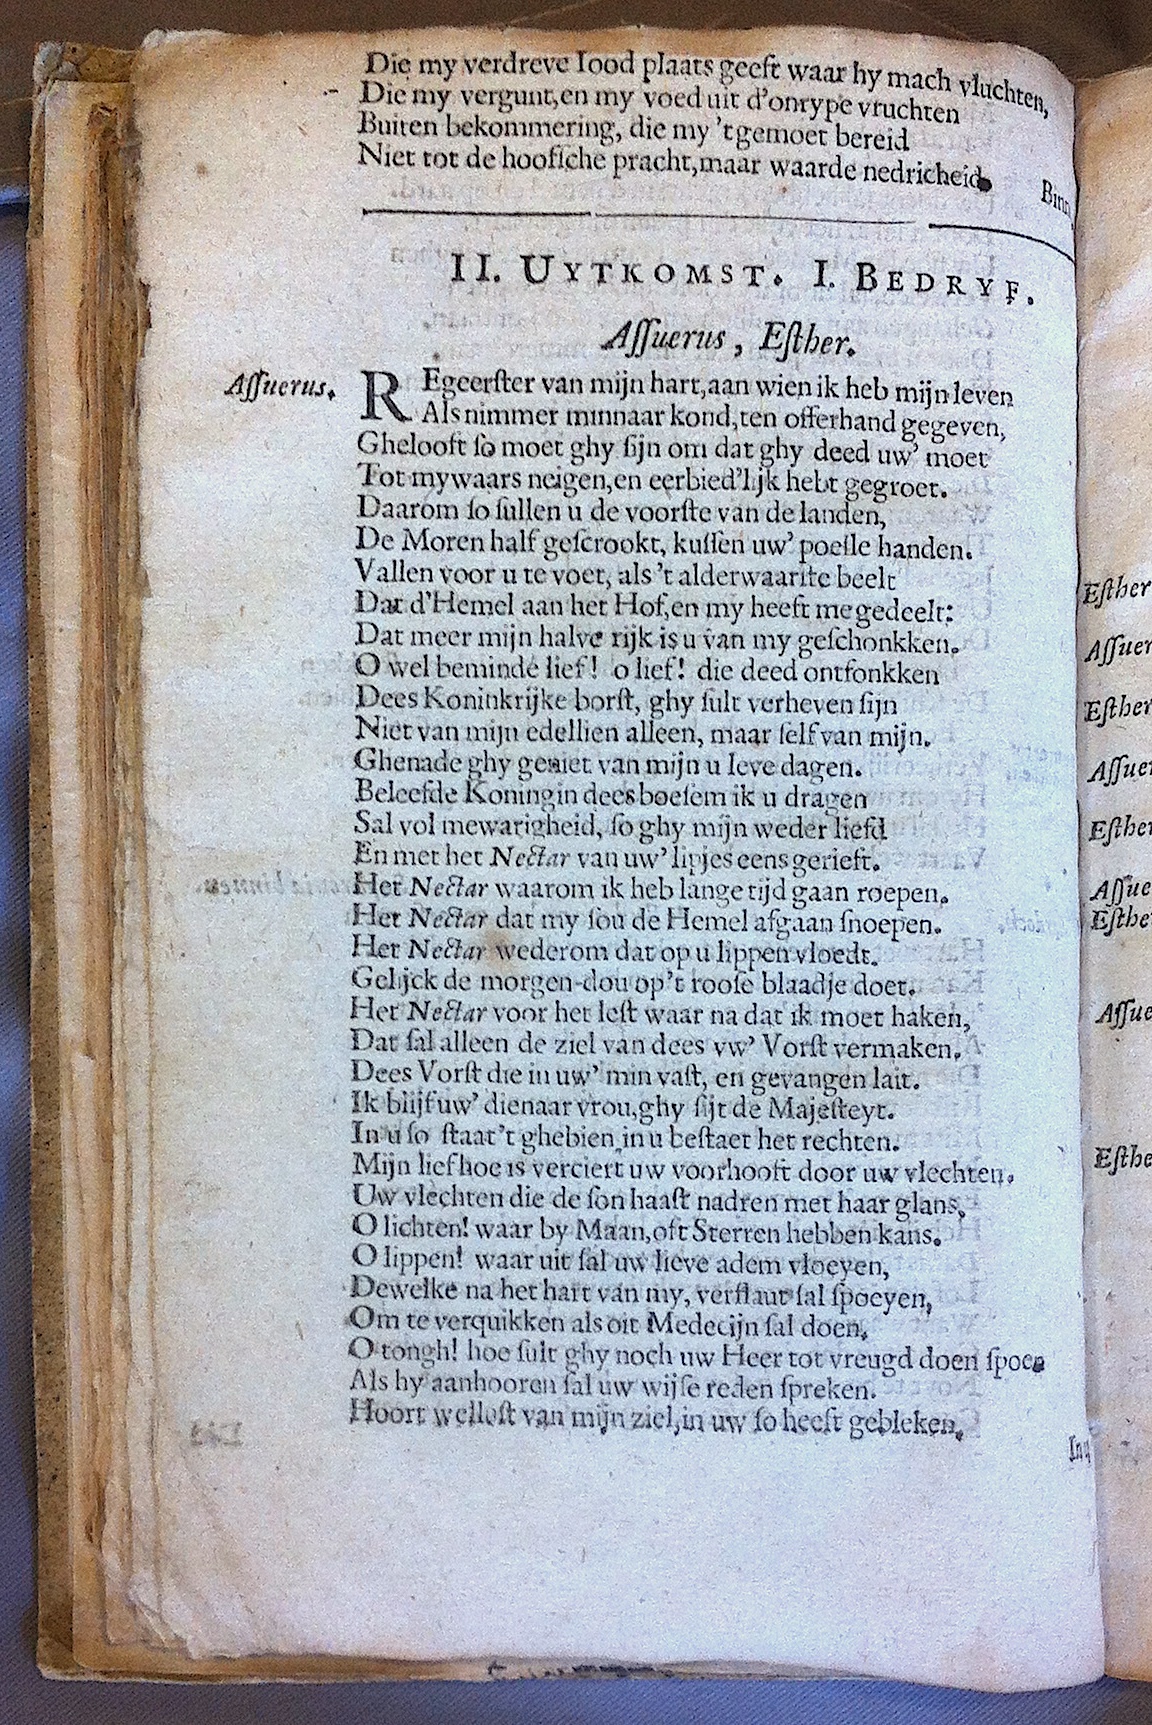 Die my verdreve Iood plaats geeft waar hy mach vluchten,
Die my vergunt, en my voed uit d'onrype vruchten
Buiten bekommering, die my 't gemoet bereid
Niet tot de hoofsche pracht, maar waarde nedricheid.
Binn
II. UYTKOMST. I. BEDRYF.
Assuerus, Esther.
Assuerus. REgeerster van mijn hart, aan wien ik heb mijn leven
Als nimmer minnaar kond, ten offerhand gegeven,
Ghelooft so moet ghy sijn om dat ghy deed uw' moet
Tot mywaars neigen, en eerbied'lijk hebt gegroet.
Daarom so sullen u de voorste van de landen,
De Moren half gescrookt, kussen uw' poesle handen.
Vallen voor u te voet, als 't alderwaarste beelt
Dat d'Hemel aan het Hof, en my heeft megedeelt:
Dat meer mijn halve rijk is u van my geschonkken.
O wel beminde lief! o lief! die deed ontfonkken
Dees Koninkrijke borst, ghy sult verheven sijn
Niet van mijn edellien alleen, maar self van mijn.
Ghenade ghy geniet van mijn u leve dagen.
Beleefde Koningin dees boesem ik u dragen
Sal vol mewarigheid, so ghy mijn weder liefd
En met het Nectar van uw' lipjes eens gerieft.
Het Nectar waarom ik heb lange tijd gaan roepen.
Het Nectar dat my sou de Hemel afgaan snoepen.
Het Nectar wederom dat op u lippen vloedt.
Gelijck de morgen-dou op 't roose blaadje doet.
Het Nectar voor het lest waar na dat ik moet haken,
Dat sal alleen de ziel van dees vw' Vorst vermaken.
Dees Vorst die in uw' min vast, en gevangen lait.
Ik blijf uw' dienaar vrou, ghy sijt de Majesteyt.
In u so staat 't ghebien in u bestaet het rechten.
Mijn lief hoe is verciert uw voorhooft door uw vlechten.
Uw vlechten die de son haast nadren met haar glans,
O lichten! waar by Maan, oft Sterren hebben kans.
O lippen! waar uit sal uw lieve adem vloeyen,
Dewelke na het hart van my, verflaut sal spoeyen,
Om te verquikken als oit Medecijn sal doen.
O tongh! hoe sult ghy noch uw Heer tot vreugd doen spoen
Als hy aanhooren sal uw wijse reden spreken.
Hoort wellust van mijn ziel, in uw so heeft gebleken,
In u
Esther
Assuer
Esther
Assuer
Esther
Assue
Esthe
Assue
Esthe